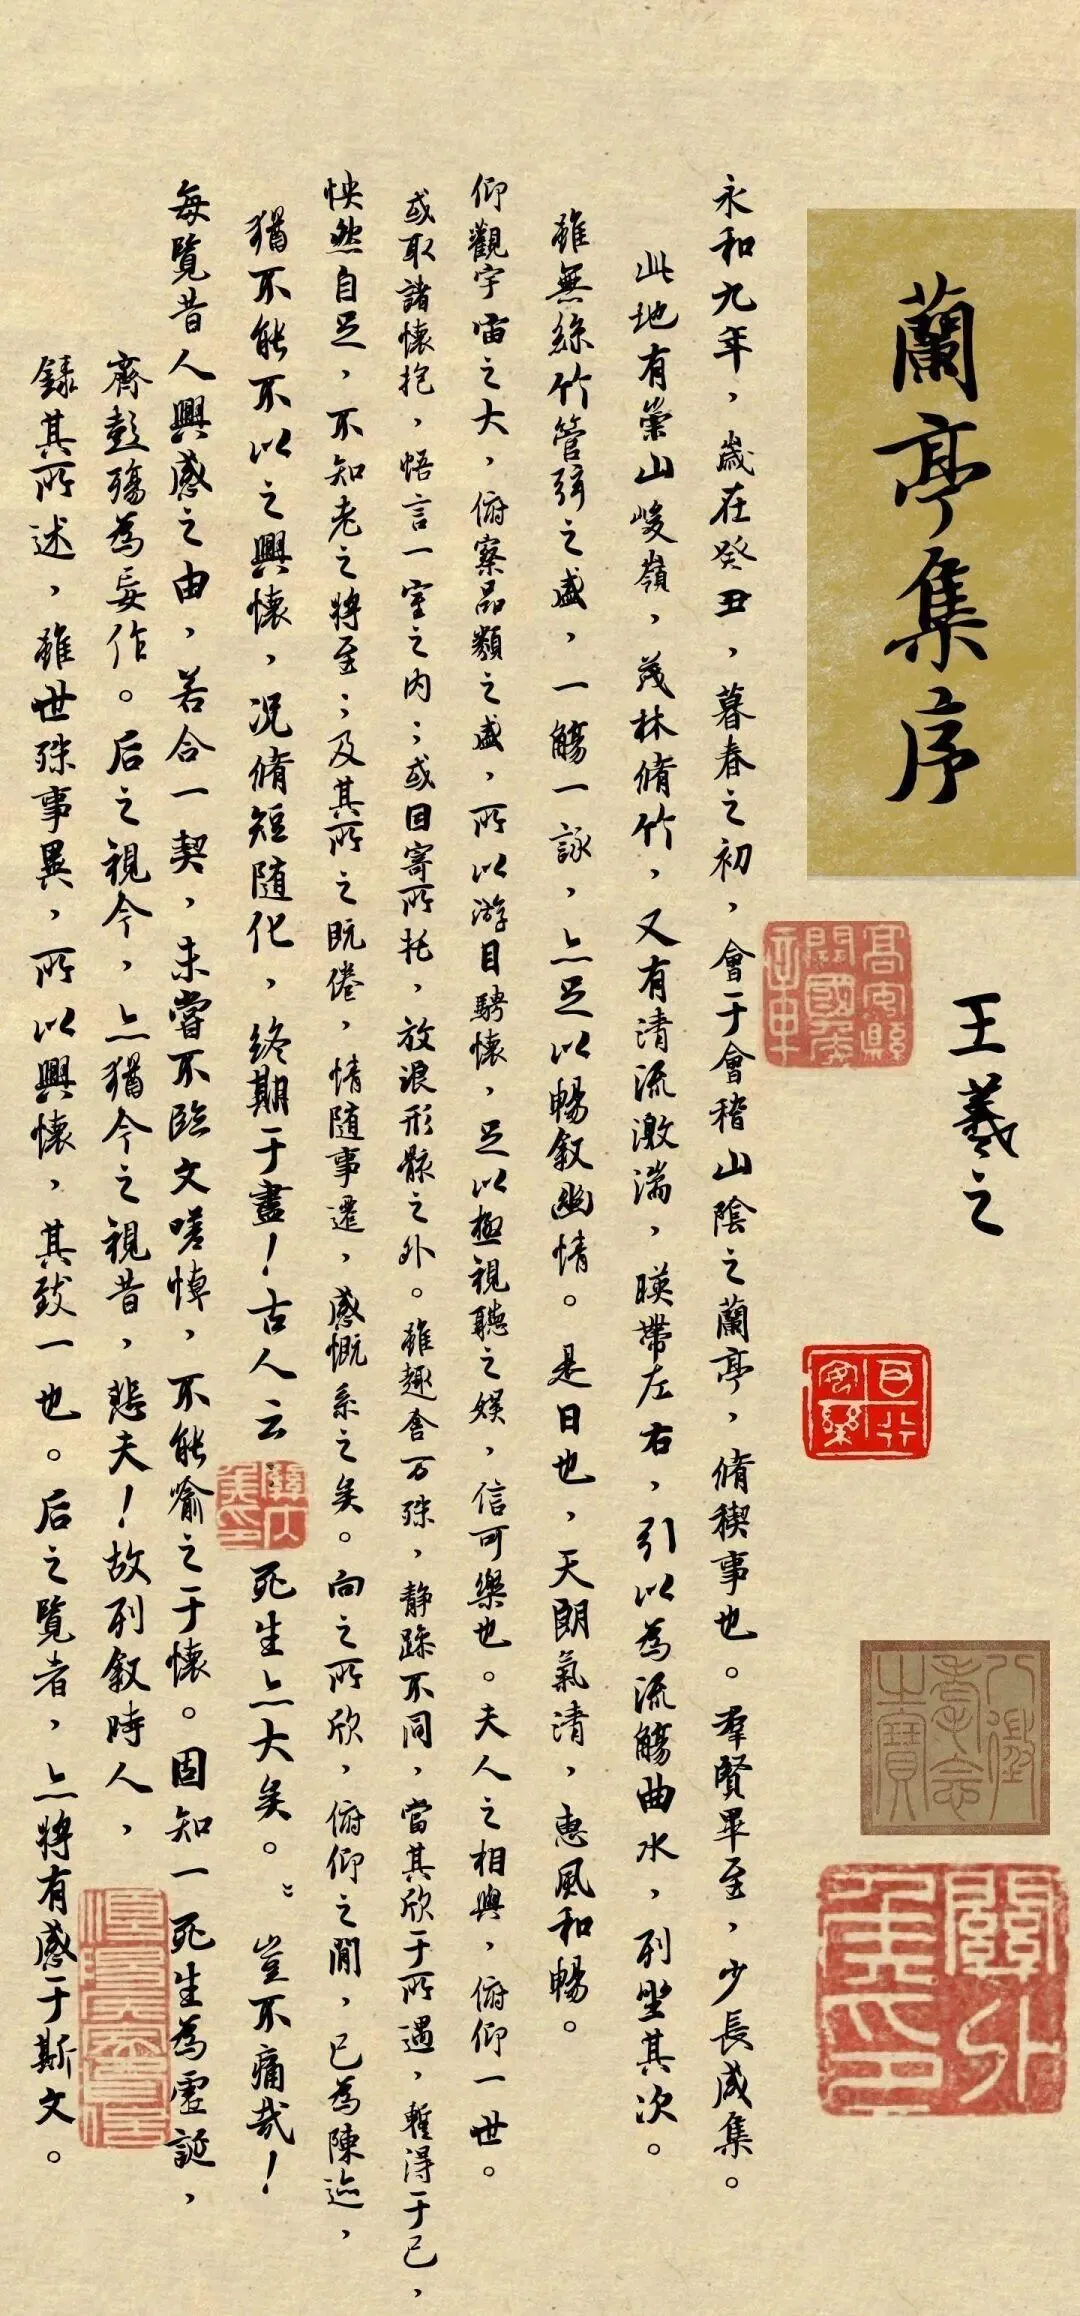 蘭亭集序
王羲之
永和九年，歲在癸丑，暮春之初，會于會稽山陰之蘭亭，脩稧事也。羣賢畢至，少長咸集。
此地有崇山峻嶺，茂林脩竹，又有清流激湍，暎帶左右，引以為流觴曲水，列坐其次。
雖無絲竹管弦之盛，一觴一詠，亦足以暢叙幽情。是日也，天朗氣清，惠風和暢。
仰觀宇宙之大，俯察品類之盛，所以游目騁懐，足以極視聽之娱，信可樂也。夫人之相與，俯仰一世。
或取諸懐抱，悟言一室之内；或因寄所托，放浪形骸之外。雖趣舍万殊，静躁不同，當其欣于所遇，暫得于己，
怏然自足，不知老之將至；及其所之既倦，情随事遷，感慨系之矣。向之所欣，俯仰之閒，已為陳迹，
猶不能不以之興懐，况脩短随化，終期于盡！古人云：死生亦大矣。”豈不痛哉！
每覽昔人興感之由，若合一契，未嘗不臨文嗟悼，不能喻之于懐。固知一死生為虚誕，
齊彭殤為妄作。后之視今，亦猶今之視昔，悲夫！故列叙時人，
録其所述，雖世殊事異，所以興懐，其致一也。后之覽者，亦將有感于斯文。